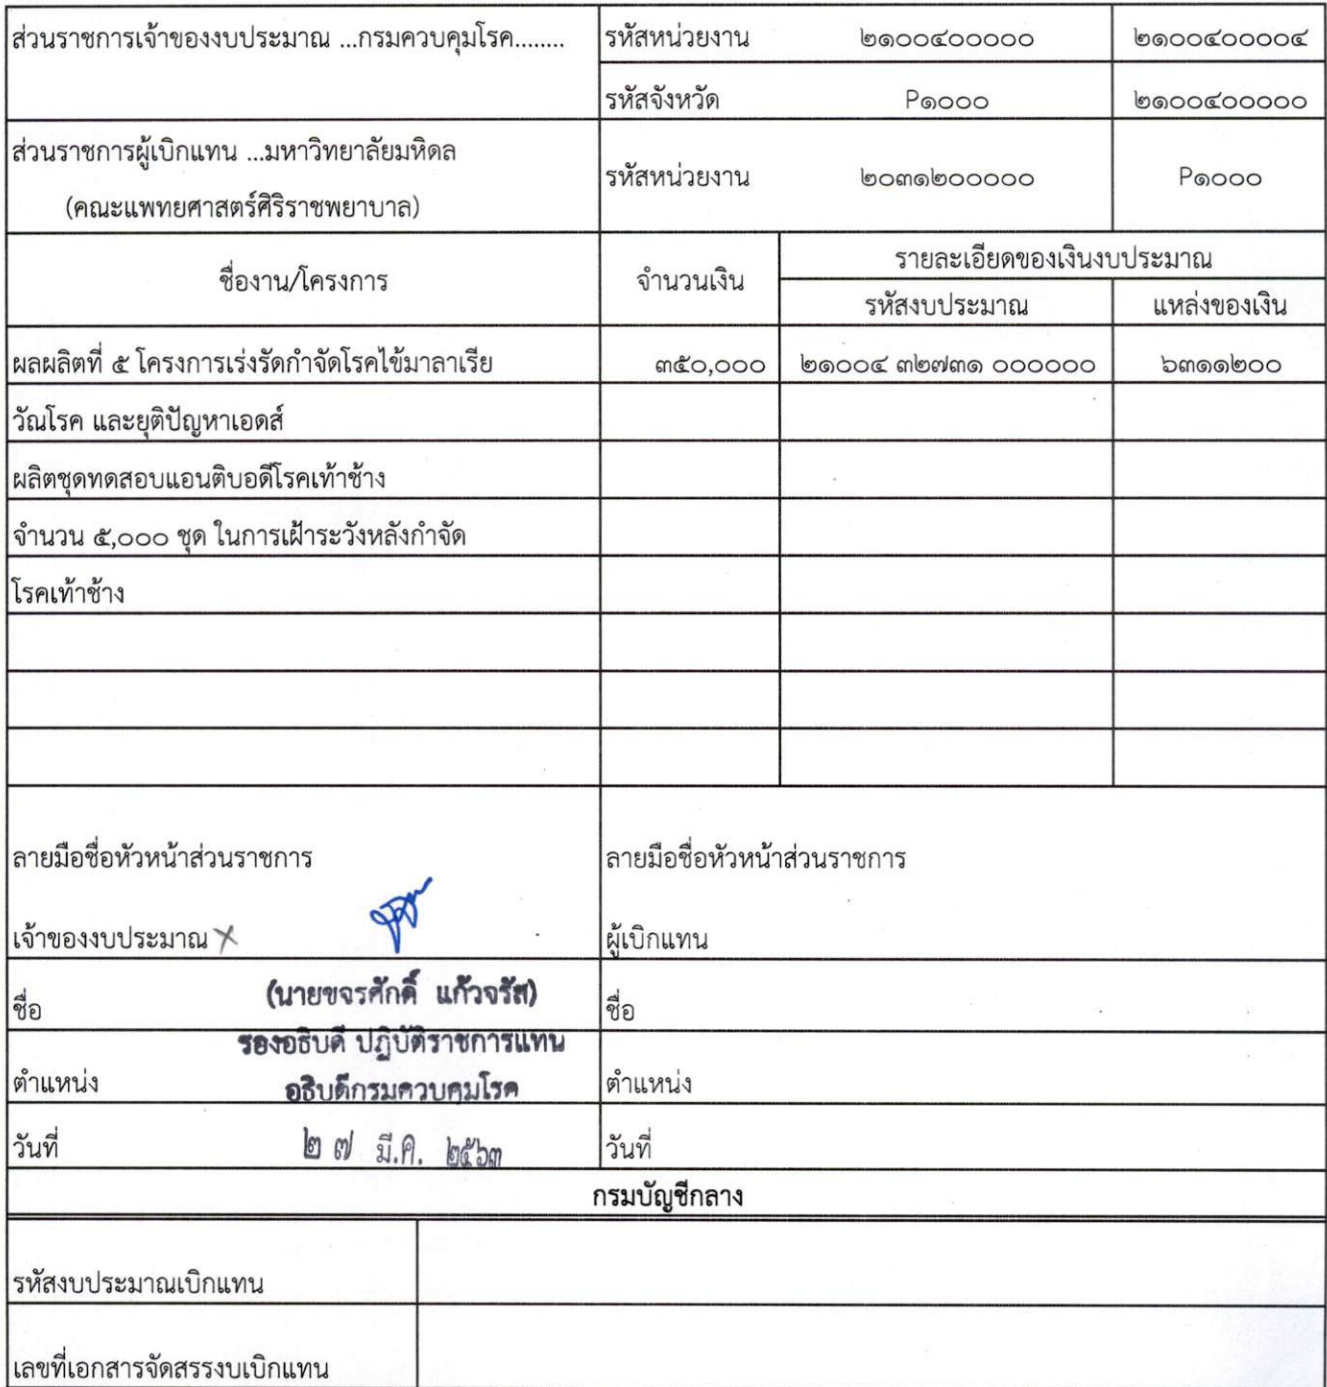 ส่วนราชการเจ้าของงบประมาณ ...กรมควบคุมโรค........ รหัสหน่วยงาน ๒๑๐๐๔๐๐๐๐๐ ๒๑๐๐๔๐๐๐๐๔
รหัสจังหวัด P๑๐๐๐ ๒๑๐๐๔๐๐๐๐๐
ส่วนราชการผู้เบิกแทน ...มหาวิทยาลัยมหิดล
(คณะแพทยศาสตร์ศิริราชพยาบาล)
รหัสหน่วยงาน ๒๐๓๑๒๐๐๐๐๐ P๑๐๐๐
ชื่องาน/โครงการ จำนวนเงิน รายละเอียดของเงินงบประมาณ
รหัสงบประมาณ แหล่งของเงิน
ผลผลิตที่ ๕ โครงการเร่งรัดกำจัดโรคไข้มาลาเรีย ๓๕๐,๐๐๐ ๒๑๐๐๔ ๓๒๗๓๑ ๐๐๐๐๐๐ ๖๓๑๑๒๐๐
วัณโรค และยุติปัญหาเอดส์
ผลิตชุดทดสอบแอนติบอดีโรคเท้าช้าง
จำนวน ๕,๐๐๐ ชุด ในการเฝ้าระวังหลังกำจัด
โรคเท้าช้าง
ลายมือชื่อหัวหน้าส่วนราชการ ลายมือชื่อหัวหน้าส่วนราชการ
เจ้าของงบประมาณ ผู้เบิกแทน
ชื่อ (นายขจรศักดิ์ แก้วจรัส) ชื่อ
รองอธิบดี ปฏิบัติราชการแทน
ตำแหน่ง อธิบดีกรมควบคุมโรค ตำแหน่ง
วันที่ ๒ ๗ มี.ค. ๒๕๖๓ วันที่
กรมบัญชีกลาง
รหัสงบประมาณเบิกแทน
เลขที่เอกสารจัดสรรงบเบิกแทน